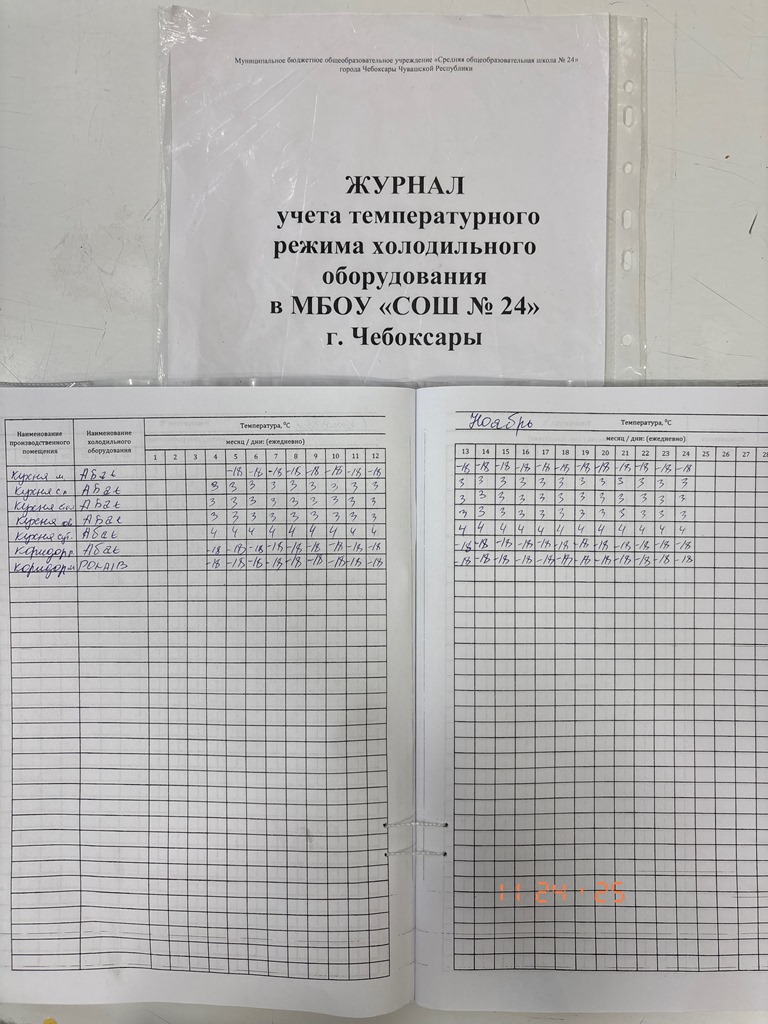 Муниципальное бюджетное общеобразовательное учреждение «Средняя общеобразовательная школа № 24»
города Чебоксары Чувашской Республики
ЖУРНАЛ
учета температурного
режима холодильного
оборудования
в МБОУ «СОШ № 24»
г. Чебоксары
Наименование производственного помещения
Наименование холодильного оборудования
Температура, ⁰С
месяц / дни: (ежедневно)
1 2 3 4 5 6 7 8 9 10 11 12
Кухня Абат -18 -18 -18 -18 -18 -18 -18 -18
Кухня Абат 3 3 3 3 3 3 3 3 3
Кухня Абат 3 3 3 3 3 3 3 3 3
Кухня Абат 3 3 3 3 3 3 3 3 3
Кухня Абат 4 4 4 4 4 4 4 4 4
Коридор Абат -18 -18 -18 -18 -18 -18 -18 -18 -18
Коридор POLAIR -18 -18 -18 -18 -18 -18 -18 -18 -18
Ноябрь
Температура, ⁰С
месяц / дни: (ежедневно)
13 14 15 16 17 18 19 20 21 22 23 24 25 26 27 28
-18 -18 -18 -18 -18 -18 -18 -18 -18 -18 -18 -18
3 3 3 3 3 3 3 3 3 3 3 3
3 3 3 3 3 3 3 3 3 3 3 3
3 3 3 3 3 3 3 3 3 3 3 3
4 4 4 4 4 4 4 4 4 4 4 4
-18 -18 -18 -18 -18 -18 -18 -18 -18 -18 -18 -18
-18 -18 -18 -18 -18 -18 -18 -18 -18 -18 -18 -18
11 24 '25